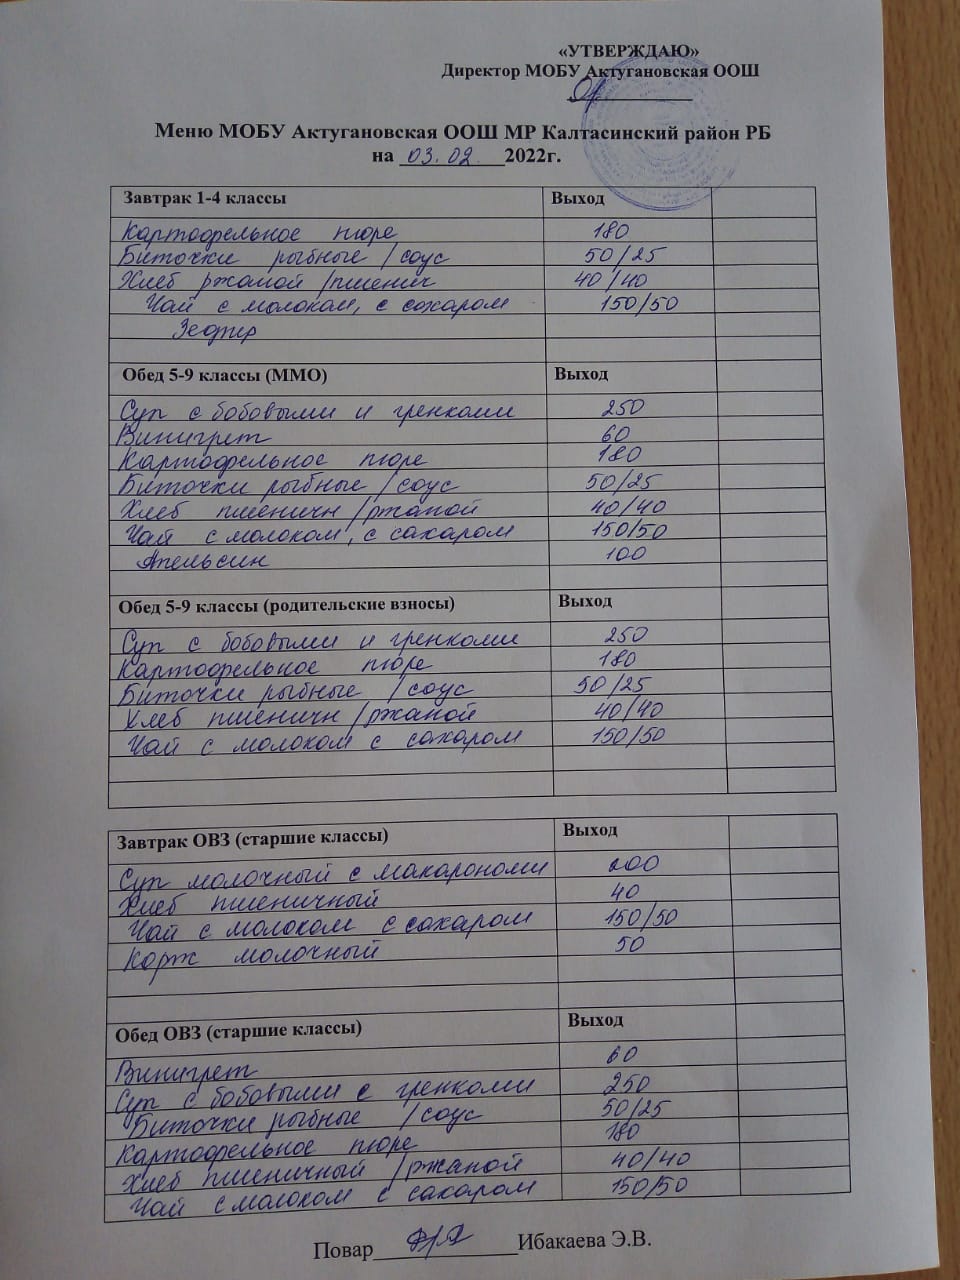 «УТВЕРЖДАЮ»
Директор МОБУ Актугановская ООШ
Меню МОБУ Актугановская ООШ МР Калтасинский район РБ
на 03.02 2022г.
Завтрак 1-4 классы Выход
Картофельное пюре 180
Биточки рыбные /соус 50/25
Хлеб ржаной /пшенич 40/40
Чай с молоком, с сахаром 150/50
Зефир
Обед 5-9 классы (ММО) Выход
Суп с бобовыми и гренками 250
Винигрет 60
Картофельное пюре 180
Биточки рыбные /соус 50/25
Хлеб пшеничн /ржаной 40/40
Чай с молоком, с сахаром 150/50
Апельсин 100
Обед 5-9 классы (родительские взносы) Выход
Суп с бобовыми и гренками 250
Картофельное пюре 180
Биточки рыбные /соус 50/25
Хлеб пшеничн /ржаной 40/40
Чай с молоком с сахаром 150/50
Завтрак ОВЗ (старшие классы) Выход
Суп молочный с макаронами 200
Хлеб пшеничный 40
Чай с молоком с сахаром 150/50
Корж молочный 50
Обед ОВЗ (старшие классы) Выход
Винигрет 60
Суп с бобовыми с гренками 250
Биточки рыбные /соус 50/25
Картофельное пюре 180
Хлеб пшеничный /ржаной 40/40
Чай с молоком с сахаром 150/50
Повар Ибакаева Э.В.